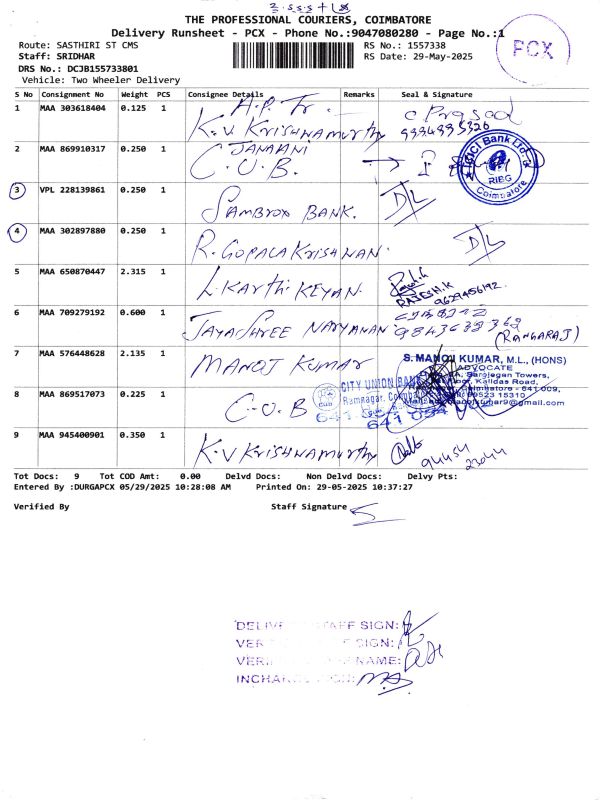 THE PROFESSIONAL COURIERS, COIMBATORE
Delivery Runsheet - PCX - Phone No.:9047080280 - Page No.:1
Route: SASTHIRI ST CMS
RS No.: 1557338
Staff: SRIDHAR
RS Date: 29-May-2025
DRS No.: DCJB155733801
Vehicle: Two Wheeler Delivery
PCX
S No Consignment No Weight PCS Consignee Details Remarks Seal & Signature
1 MAA 303618404 0.125 1 A.P. Tr. K.V KRISHNAMURTHY
2 MAA 869910317 0.250 1 JANAANI C.U.B.
ICICI Bank Ltd.
RIBG
Coimbatore
3 VPL 228139861 0.250 1 SAMBROX BANK. D/L
4 MAA 302897880 0.250 1 R. GOPALA KRISHNAN. D/L
5 MAA 650870447 2.315 1 L. KARTHI KEYAN. RAJESH.K 9629456192.
6 MAA 709279192 0.600 1 JAYASHREE NARYANAN (RANGARAJ)
7 MAA 576448628 2.135 1 MANOJ KUMAR
S. MANOJ KUMAR, M.L., (HONS)
ADVOCATE
Kalidas Road,
Coimbatore - 641 009,
8 MAA 869517073 0.225 1 C.U.B
CITY UNION BANK
Ramnagar, Coimbatore
9 MAA 945400901 0.350 1 K.V KRISHNAMURTHY 94454 23044
Tot Docs: 9 Tot COD Amt: 0.00 Delvd Docs: Non Delvd Docs: Delvy Pts:
Entered By :DURGAPCX 05/29/2025 10:28:08 AM Printed On: 29-05-2025 10:37:27
Verified By Staff Signature
STAFF SIGN:
SIGN:
NAME: